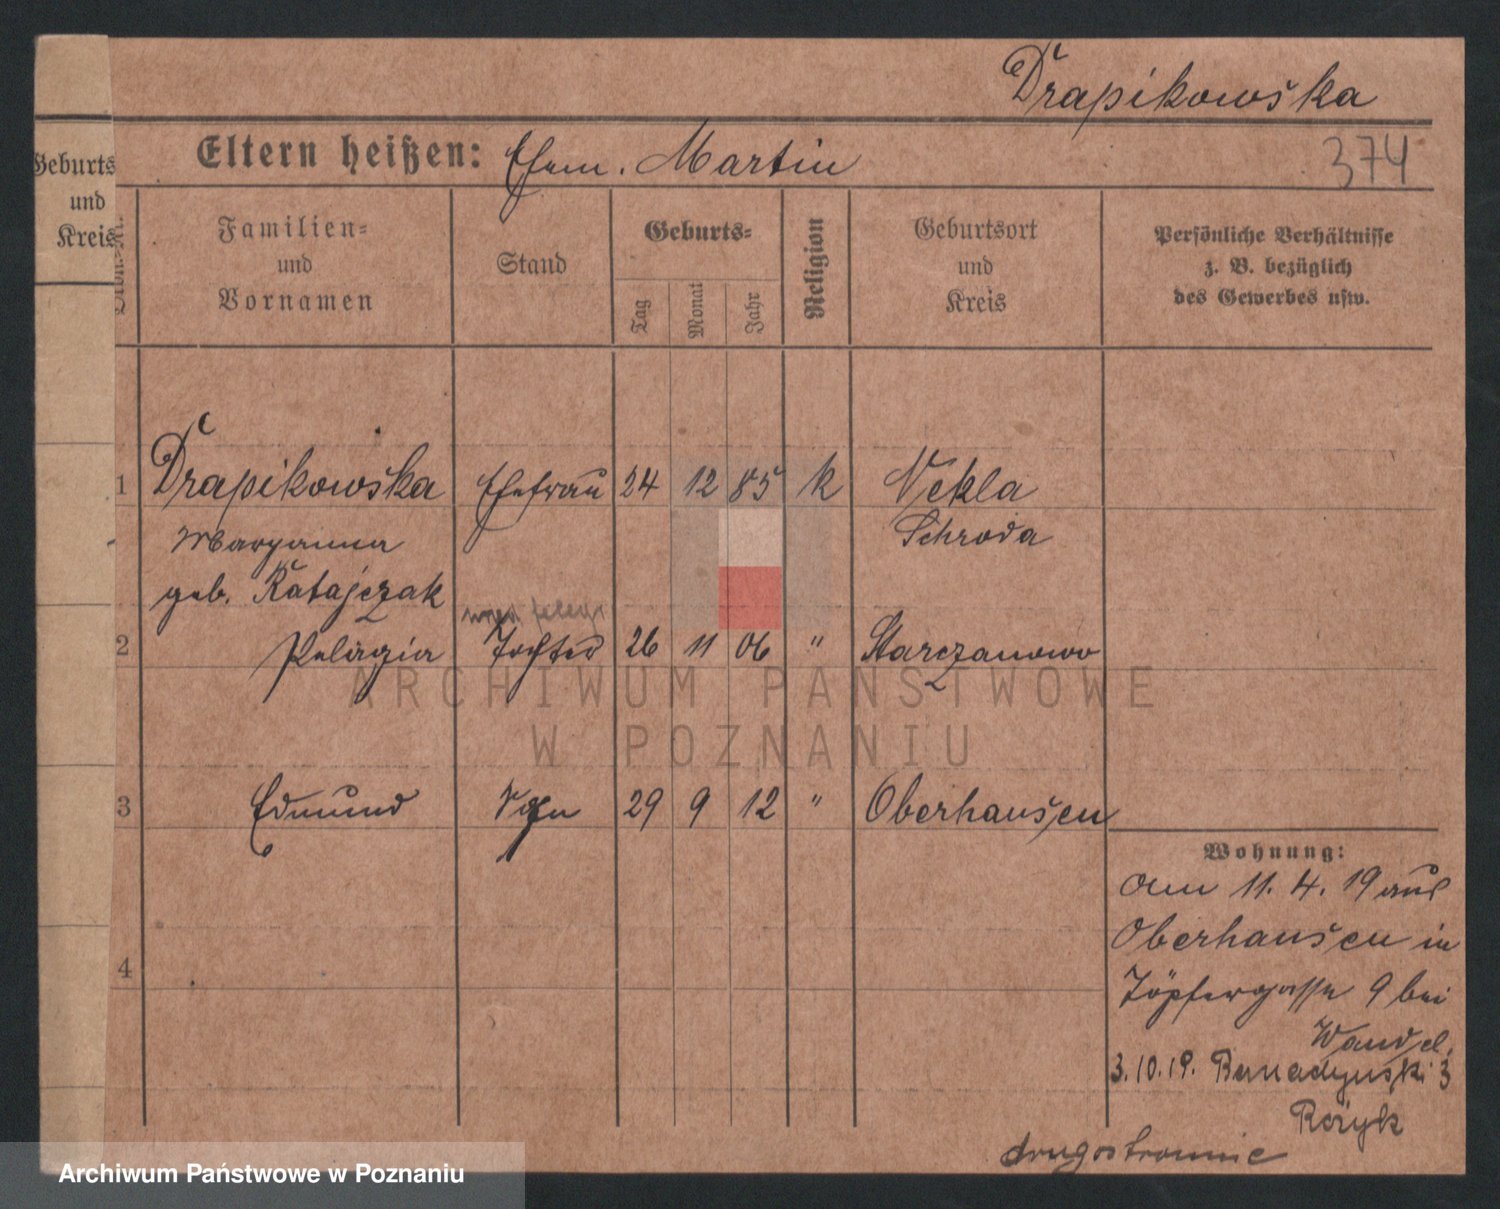 Drapikowska
Eltern heißen: Ehem. Martin
374
Geburts
und
Kreis
Familien=
und
Vornamen
Stand
Geburts=
Tag
Monat
Jahr
Religion
Geburtsort
und
Kreis
Persönliche Verhältnisse
z. B. bezüglich
des Gewerbes usw.
1 Drapikowska Ehefrau 24 12 85 k Nekla
Maryanna Schroda
geb. Ratajczak
2 Pelagia Tochter 26 11 06 " Starczanowo
3 Edmund Sohn 29 9 12 " Oberhausen
Wohnung:
am 11. 4. 19 aus
Oberhausen in
Töpfergasse 9 bei
Wandel.
3.10.19. Bernadynski 3
4
drugostronnie
ARCHIWUM PAŃSTWOWE
W POZNANIU
Archiwum Państwowe w Poznaniu